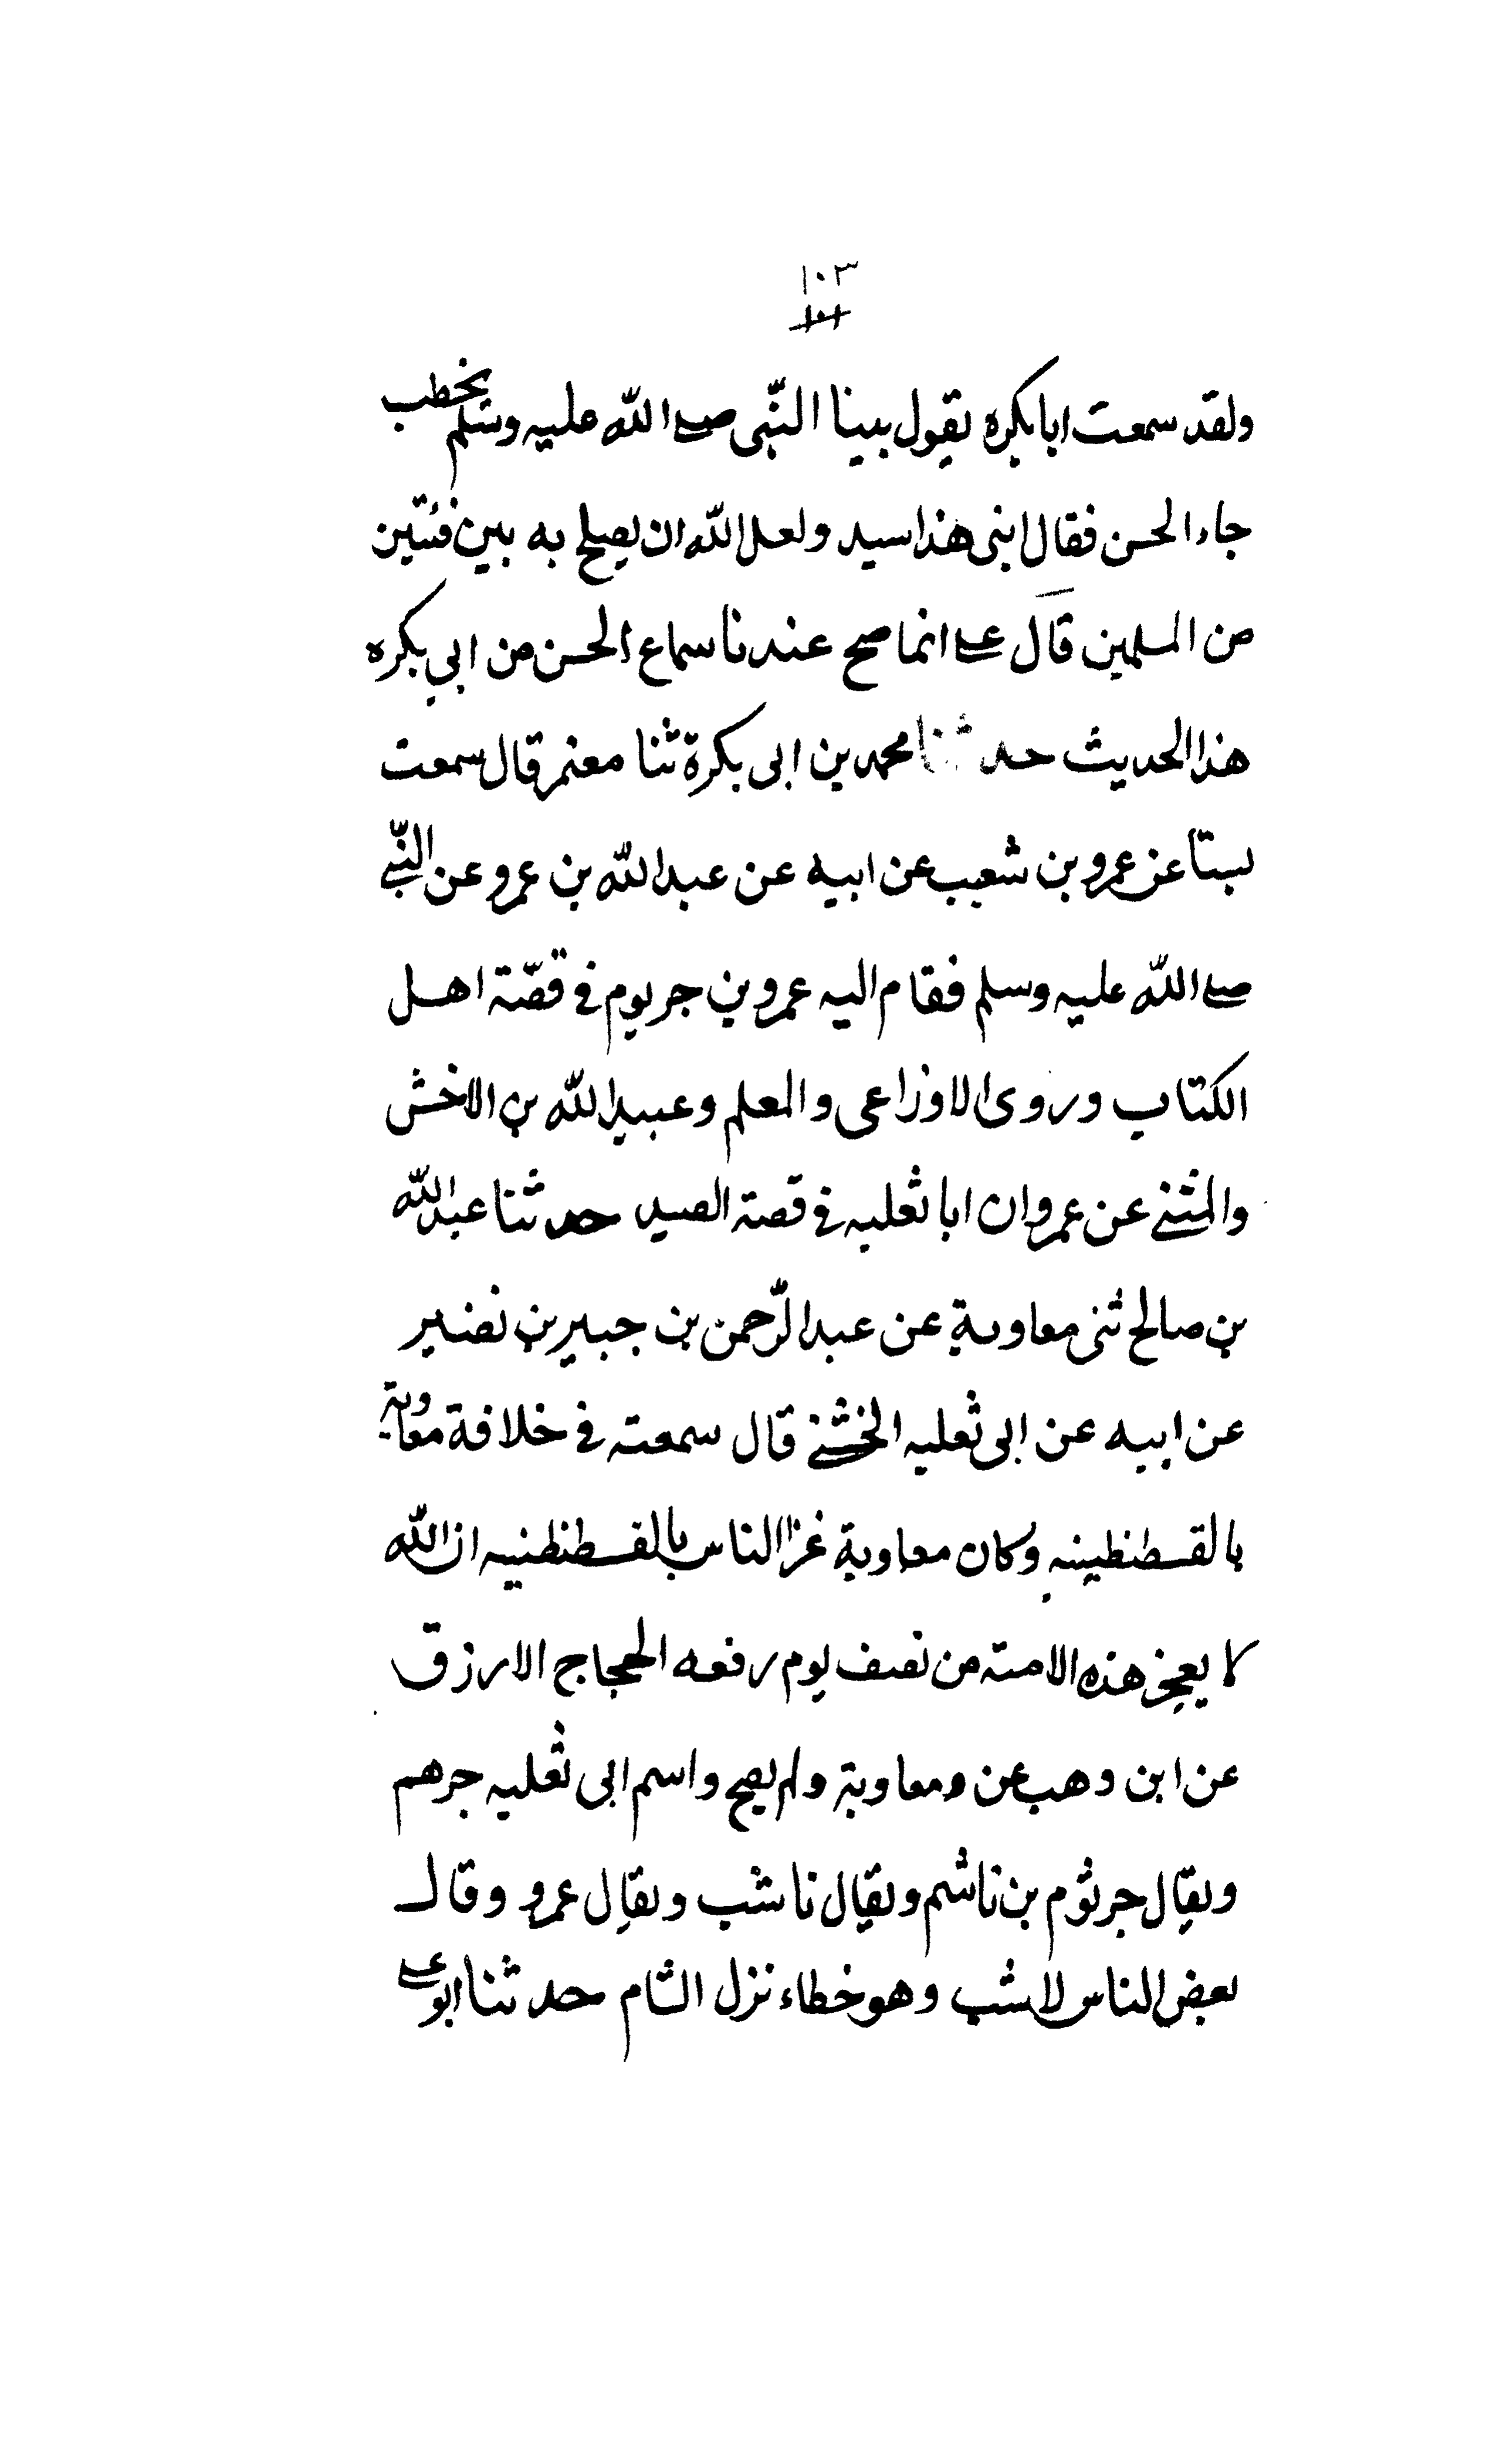 ١٠٣
١٠١
ولقد سمعت ابا بكره يقول بينا النّبى صلے الله عليه وسلم يخطب
جاء الحسن فقال ابنى هذا سيد ولعل الله ان يصلح به بين فئتين
من المسلمين قال علے انما صح عندنا سماع الحسن من ابي بكره
هذا الحديث حدثنا محمد بن ابى بكرة ثنا معتمر قال سمعت
عن عمرو بن شعيب عن ابيه عن عبد الله بن عمرو عن النّبے
صلے الله عليه وسلم فقام اليه عمرو بن جريوم فے قصّة اهل
الكتاب وروى الاوزاعى والمعلم وعبيد الله بن الاخش
والمثنے عن عمرو ان ابا ثعلبه فے قصة الصيد حدثنا عبد الله
بن صالح ثنى معاوية عن عبد الرّحمن بن جبير بن نضير
عن ابيه عن ابى ثعلبه الخشنے قال سمعته فے خلافة معاوية
بالقسطنطينه وكان معاوية غزا الناس بالقسطنطنيه ان الله
لا يعجز هذه الامة من نصف يوم رفعه الحجاج الارزق
عن ابن وهب عن ومعاوية ولم يصح واسم ابى ثعلبه جرهم
ويقال جرثوم بن ناشم ويقال ناشب ويقال عمرو وقال
بعض الناس لاشب وهو خطاء نزل الشام حدثنا ابو علے